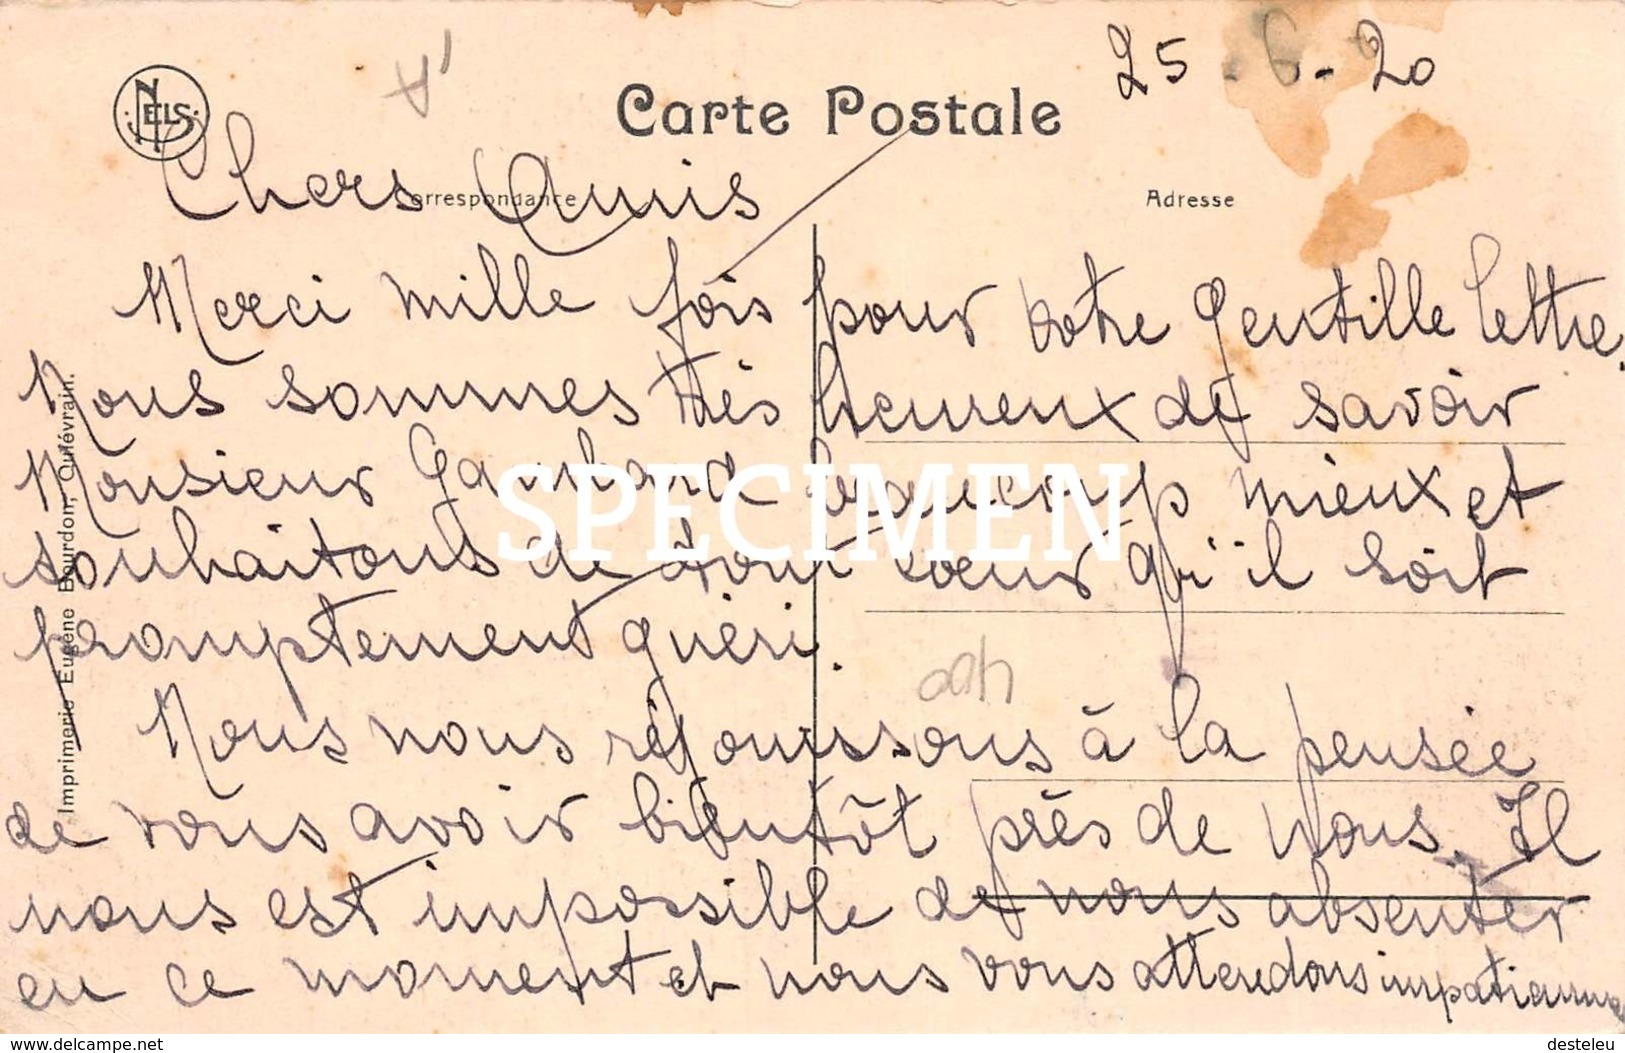 25-6-20
NELS
Carte Postale
Correspondance
Adresse
Chers Amis
Merci mille fois pour votre gentille lettre.
Nous sommes très heureux de savoir
Monsieur beaucoup mieux et
souhaitons de tout coeur qu'il soit
promptement guéri.
Nous nous réjouissons à la pensée
de vous avoir bientôt près de nous. Il
nous est impossible de nous absenter
en ce moment et nous vous attendons impatiemme
Imprimerie Eugène Bourdon, Quiévrain.
SPECIMEN
https://www.delcampe.net
desteleu